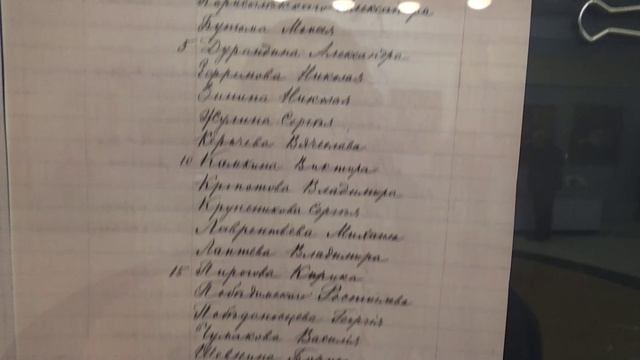 Бутома Моисея
5 Дурандина Александра
Ефремова Николая
Зинина Николая
Жулина Сергѣя
Корычева Вячеслава
10 Камкина Виктора
Кропотова Владимира
Крупеникова Сергѣя
Лаврентьева Михаила
Лаптева Владимира
15 Пирогова Кирика
Побѣдимского Ростислава
Побѣдоносцева Георгія
Чумакова Василія